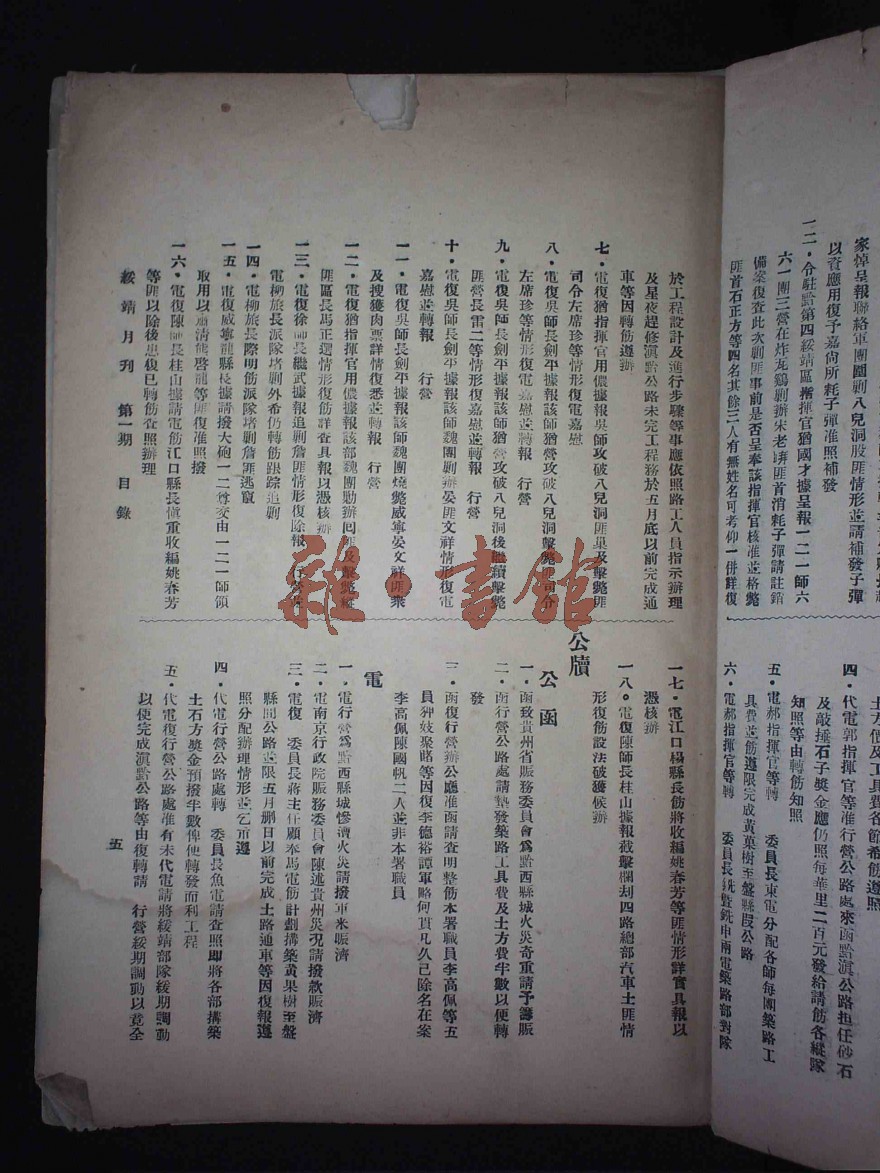 家悼呈報聯絡軍團圍剿八兒洞股匪情形並請補發子彈
以資應用復予嘉尙所耗子彈准照補發
一二・令駐黔第四綏靖區指揮官猶國才據呈報一二一師六
六一團三營在炸龙鷄剿辦宋老
匪首消耗子彈請註銷
備案復查此次剿匪事前是否呈奉該指揮官核准並格斃
匪首石正方等四名其餘三人有無姓名可考仰一併詳復
土方價及工具費各節希飭遵照
四・代電郭指揮官等准行營公路處來函黔滇公路担任砂石
及敲捶石子獎金應仍照每華里二百元發給請飭各縱隊
知照等由轉飭知照
五・電郝指揮官等轉　委員長東電分配各師每團築路工
具費並飭遵限完成黃菓樹至盤縣段公路
六・電郝指揮官等轉　委員長銑暨銑申南電築路部對隊
於工程設計及進行步驟等事應依照路工人員指示辦理
及星夜趕修滇黔公路未完工程務於五月底以前完成通
車等因轉飭遵辦
七・電復猶指揮官用儂據報吳師攻破八兒洞匪巢及擊斃匪
司令左席珍等情形復電嘉慰
八・電復吳師長劍平據報該師猶營攻破八兒洞擊斃匪司令
左席珍等情形復電嘉慰並轉報　行營
九・電復吳師長劍平據報該師猶營攻破八兒洞後繼續擊斃
匪營長雷二等情形復嘉慰並轉報　行營
十・電復吳師長劍平據報該師魏團剿辦晏匪文祥情形復電
嘉慰並轉報　行營
一一・電復吳師長劍平據報該師魏團燒斃威寧晏文祥匪衆
及搜獲肉票詳情復悉並轉報　行營
一二・電復猶指揮官用儂據報該部魏團勦辦回匪及擊斃縱
匪區長馬正選情形復飭詳查具報以憑核辦
一三・電復徐師長繼武據報追剿詹匪情形復除報　行營並
電柳旅長派隊堵剿外希仍轉飭跟踪追剿
一四・電柳旅長際明飭派隊堵剿詹匪逃竄
一五・電復威寧龍縣長據請撥大砲一二尊交由一二一師領
取用以肅清熊啓龍等匪復准照撥
一六・電復陳師長桂山據請電飭江口縣長愼重收編姚春芳
等匪以除後患復已轉飭查照辦理
綏靖月刊　第一期　目錄
一七・電江口楊縣長飭將收編姚春芳等匪情形詳實具報以
憑核辦
一八・電復陳師長桂山據報截擊欄刦四路總部汽車土匪情
形復飭設法破獲候辦
公牘
公函
一・函致貴州省賑務委員會爲黔西縣城火災奇重請予籌賑
二・函行營公路處請墊發築路工具費及土方費半數以便轉
發
三・函復行營辦公廳准函請查明整飭本署職員李高佩等五
員狎妓聚賭等因復李德裕譚軍略何貫凡久已除名在案
李高佩陳國帆二人並非本署職員
電
一・電行營爲黔西縣城慘遭火災請撥軍米賑濟
二・電南京行政院賑務委員會陳述貴州災況請撥欵賑濟
三・電復　委員長蔣主任顧奉馬電飭計劃搆築黃果樹至盤
縣間公路並限五月删日以前完成土路通車等因復報遵
照分配辦理情形並乞示遵
四・代電行營公路處轉　委員長魚電請查照即將各部搆築
土石方獎金預撥半數俾便轉發而利工程
五・代電復行營公路處准有未代電請將綏靖部隊緩期調動
以便完成滇黔公路等由復轉請　行營緩期調動以竟全
五
雜・書館